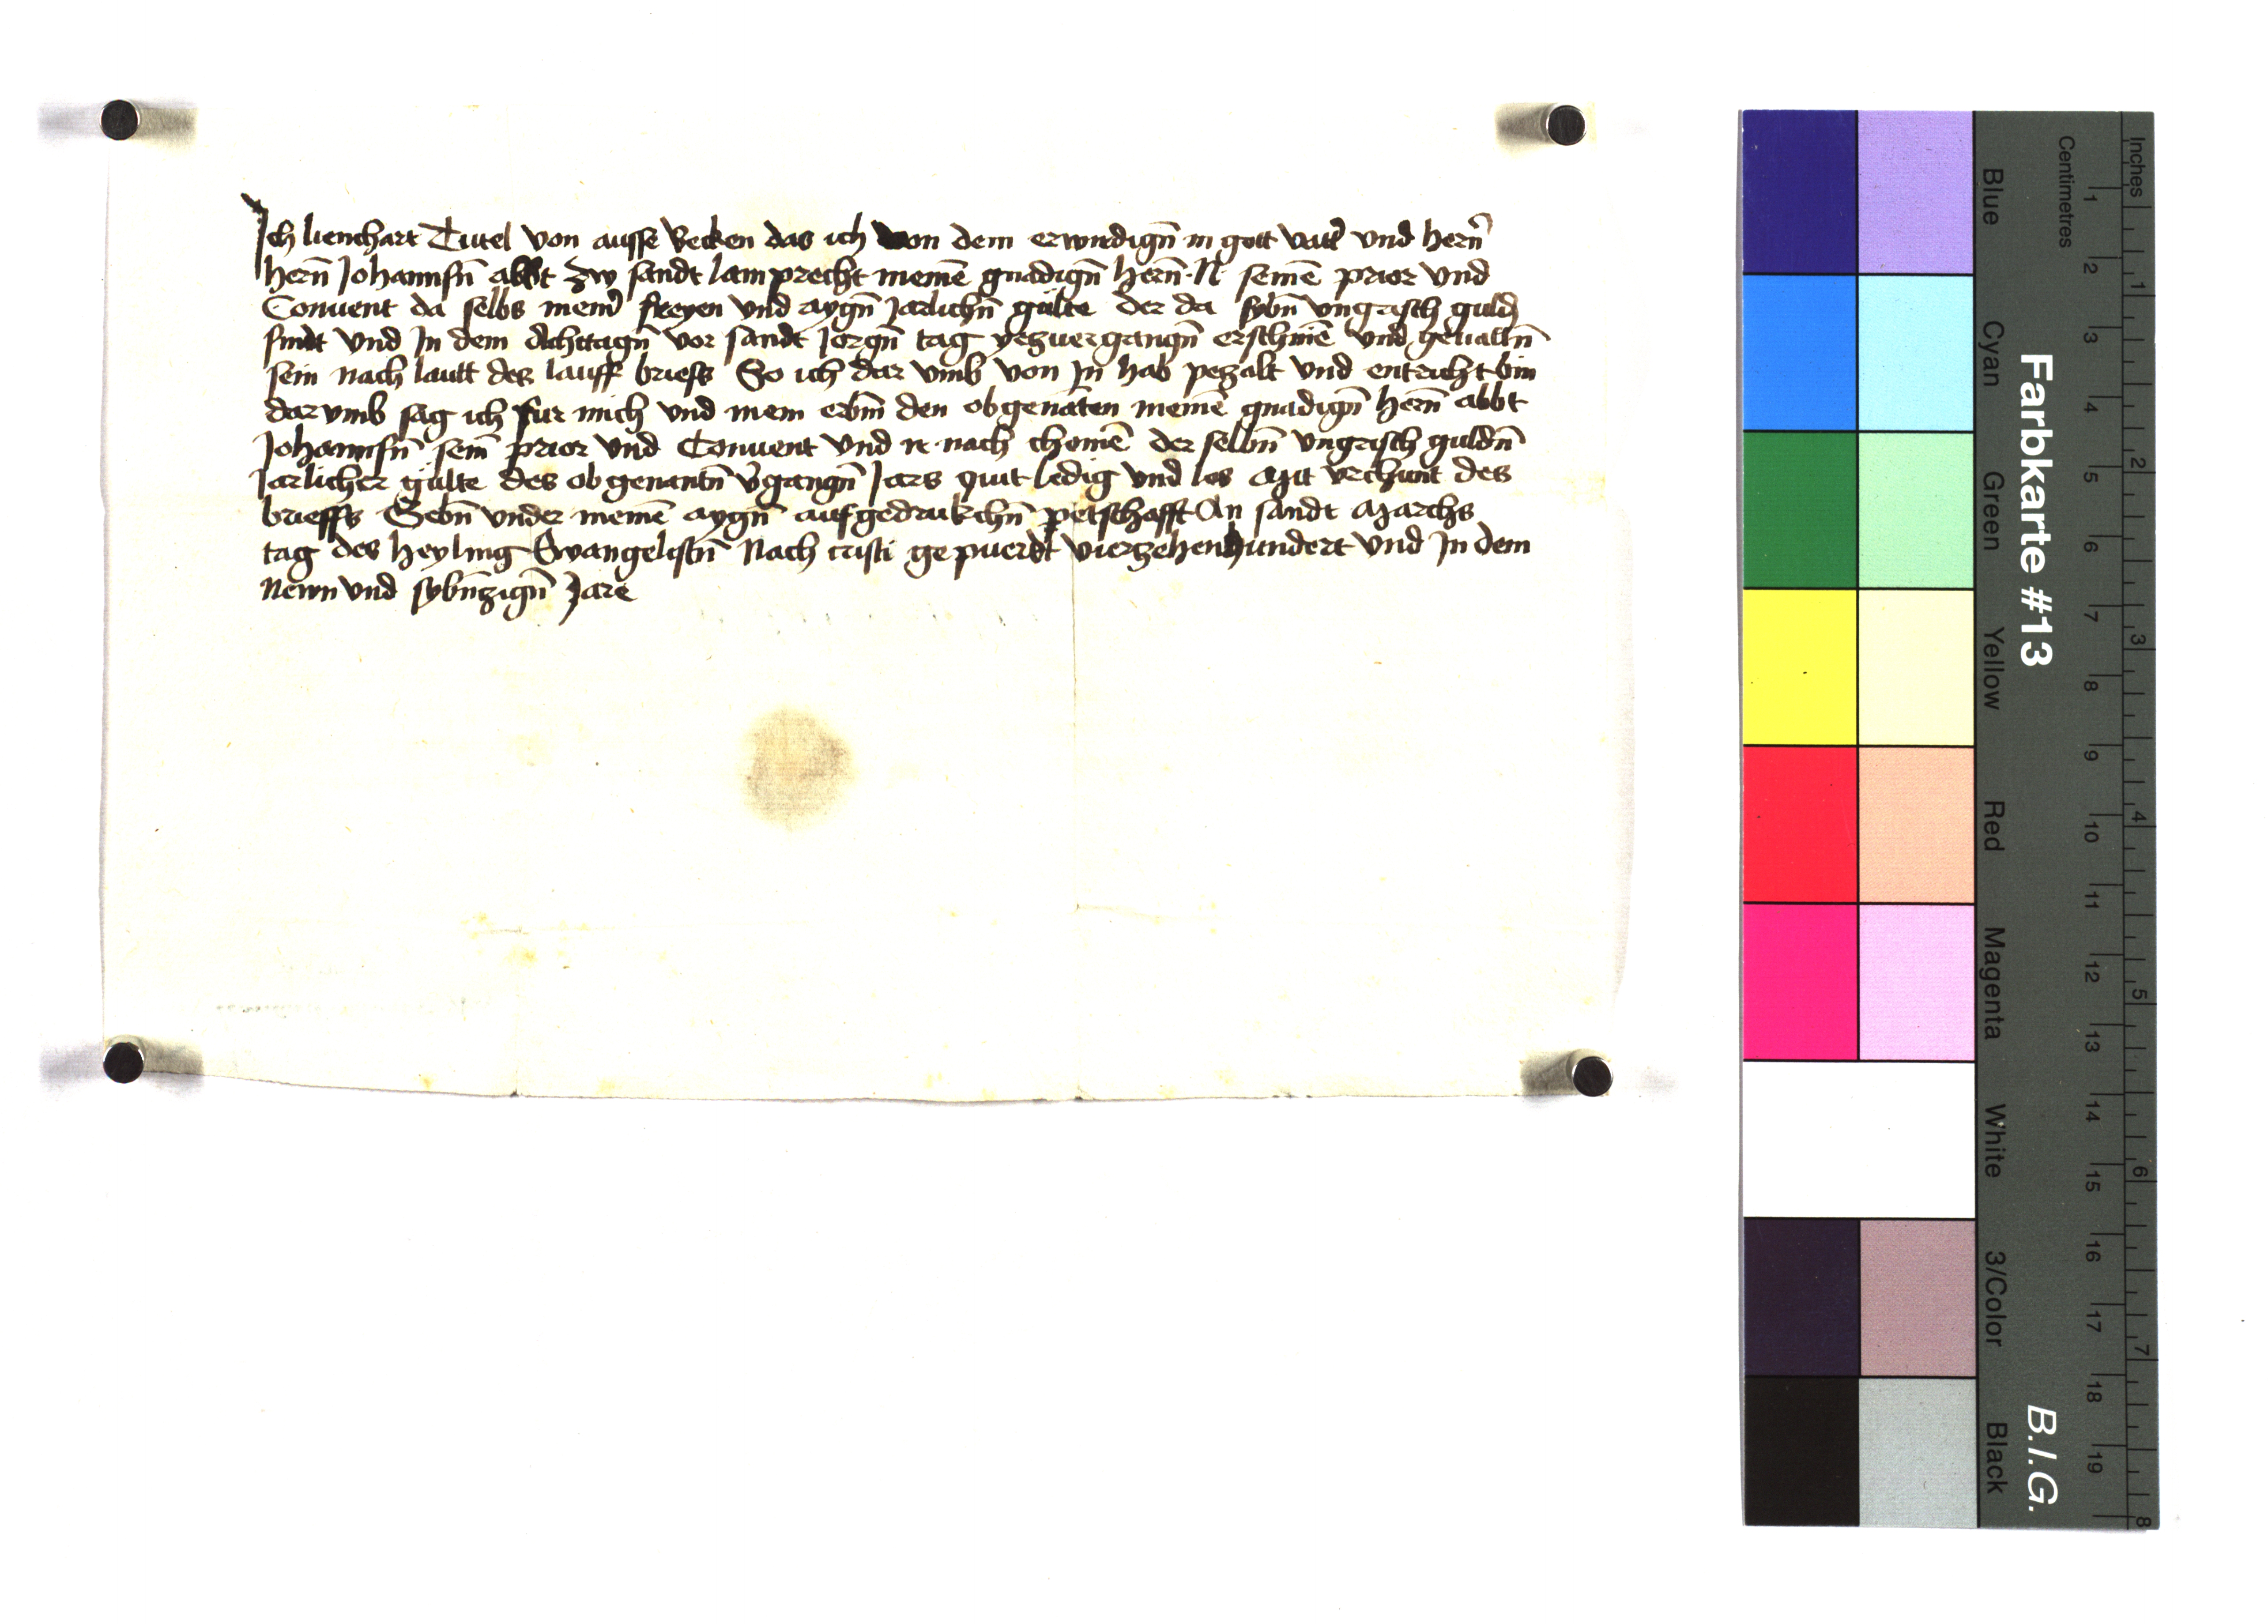 Ich lienchart Tutel von ausse Becken das ich von dem erwirdign̄ in gott vatt̄ und hern̄
hern̄ Johannsn̄ abbt zw sandt lamprecht meinē gnadign̄ hern̄ · N · seinē prior und
Convent da selbs mein̄ freyen und aygn̄ Jarlichn̄ gülte der da sybn̄ ungrisch guld
sindt und In dem Achttagn̄ vor sandt Jorgn̄ tag yezuergangn̄ erschinē und geuallñ
sein nach lautt des lauff brieffs So ich dar umb von In hab pezalt und entricht bin
dar umb sag ich fur mich und mein erbm̄ den obgenāten meinē gnadign̄ hern̄ abbt
Johannsn̄ sein̄ prior und Convent und ir nach chomē der selbn̄ ungrisch guldn̄
Jarlicher gülte des ob genantn̄ v̄gangn̄ Jars quit ledig und los Mit urchunt des
brieffs Gebn̄ under meinē aygn̄ aufgedrukchn̄ petschafft An sandt Marchs
tag des heyling Ewangelistn̄ Nach cristi gepuerdt vierzehenhundert und In dem
Newn und sybn̄zign̄ Jare
Farbkarte #13
B.I.G.
Inches 1 2 3 4 5 6 7 8
Centimetres 1 2 3 4 5 6 7 8 9 10 11 12 13 14 15 16 17 18 19
Blue
Cyan
Green
Yellow
Red
Magenta
White
3/Color
Black